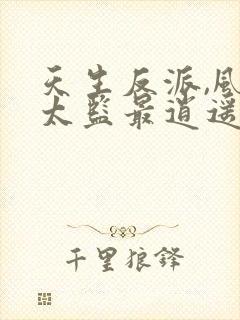 天生反派,风
太监最逍遥
千里狼锋